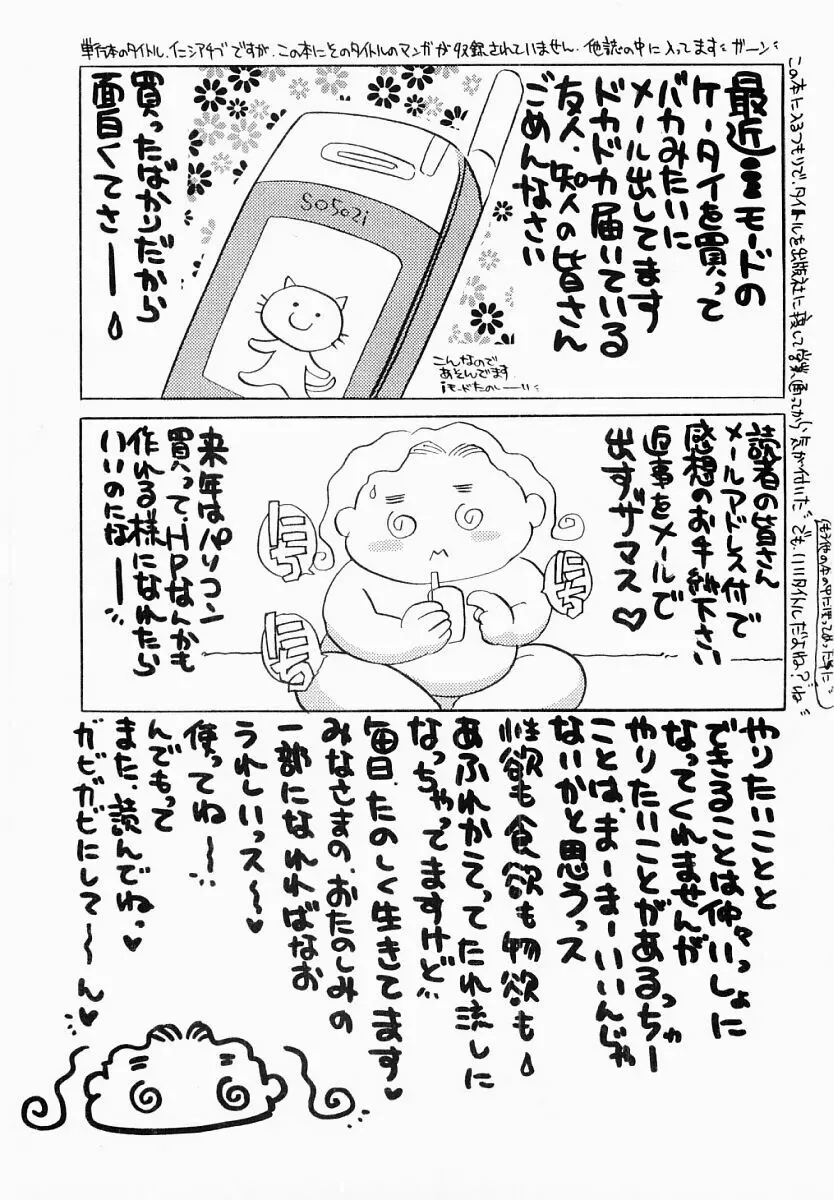 単行本のタイトル、イニシアチブですが、この本にそのタイトルのマンガが収録されていません。他誌の中に入ってます ガーン
この本に入るつもりで、タイトルを出版社に接して営業通ってから気が付いた でも、いいタイトルだよね？ ね
最近iモードの
ケータイを買って
バカみたいに
メール出してます
ドカドカ届いている
友人、知人の皆さん
ごめんなさい
SO502i
こんなので
あそんでます
iモードたのしー
買ったばかりだから
面白くてさー
読者の皆さん
メールアドレス付で
感想のお手紙下さい
返事をメールで
出すザマス♡
にちにち
にちにち
にちにち
来年はパソコン
買って、HPなんかも
作れる様になれたら
いいのになー
やりたいことと
できることは仲々いっしょに
なってくれませんが
やりたいことがあるっちゃー
ことは、まーまーいいんじゃ
ないかと思うっス
性欲も食欲も物欲も
あふれかえってたれ流しに
なっちゃってますけど
毎日、たのしく生きてます♥
みなさまの、おたのしみの
一部になれればなお
うれしいっス〜♥
使ってね〜
んでもって
また、読んでねっ♥
ガビガビにして〜ん♥